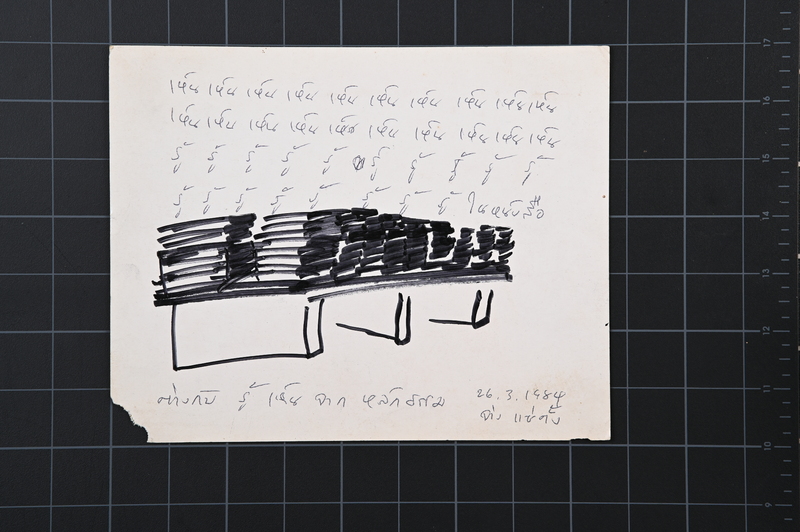 เห็น เห็น เห็น เห็น เห็น เห็น เห็น เห็น เห็น เห็น
เห็น เห็น เห็น เห็น เห็น เห็น เห็น เห็น เห็น เห็น
รู้ รู้ รู้ รู้ รู้ รู้ รู้ รู้ รู้ รู้
รู้ รู้ รู้ รู้ รู้ รู้ รู้ รู้ ในหนังสือ
ต่างกับ รู้ เห็น จาก หลักธรรม
26.3.1984
จ่าง แซ่ตั้ง
17
16
15
14
13
12
11
10
9